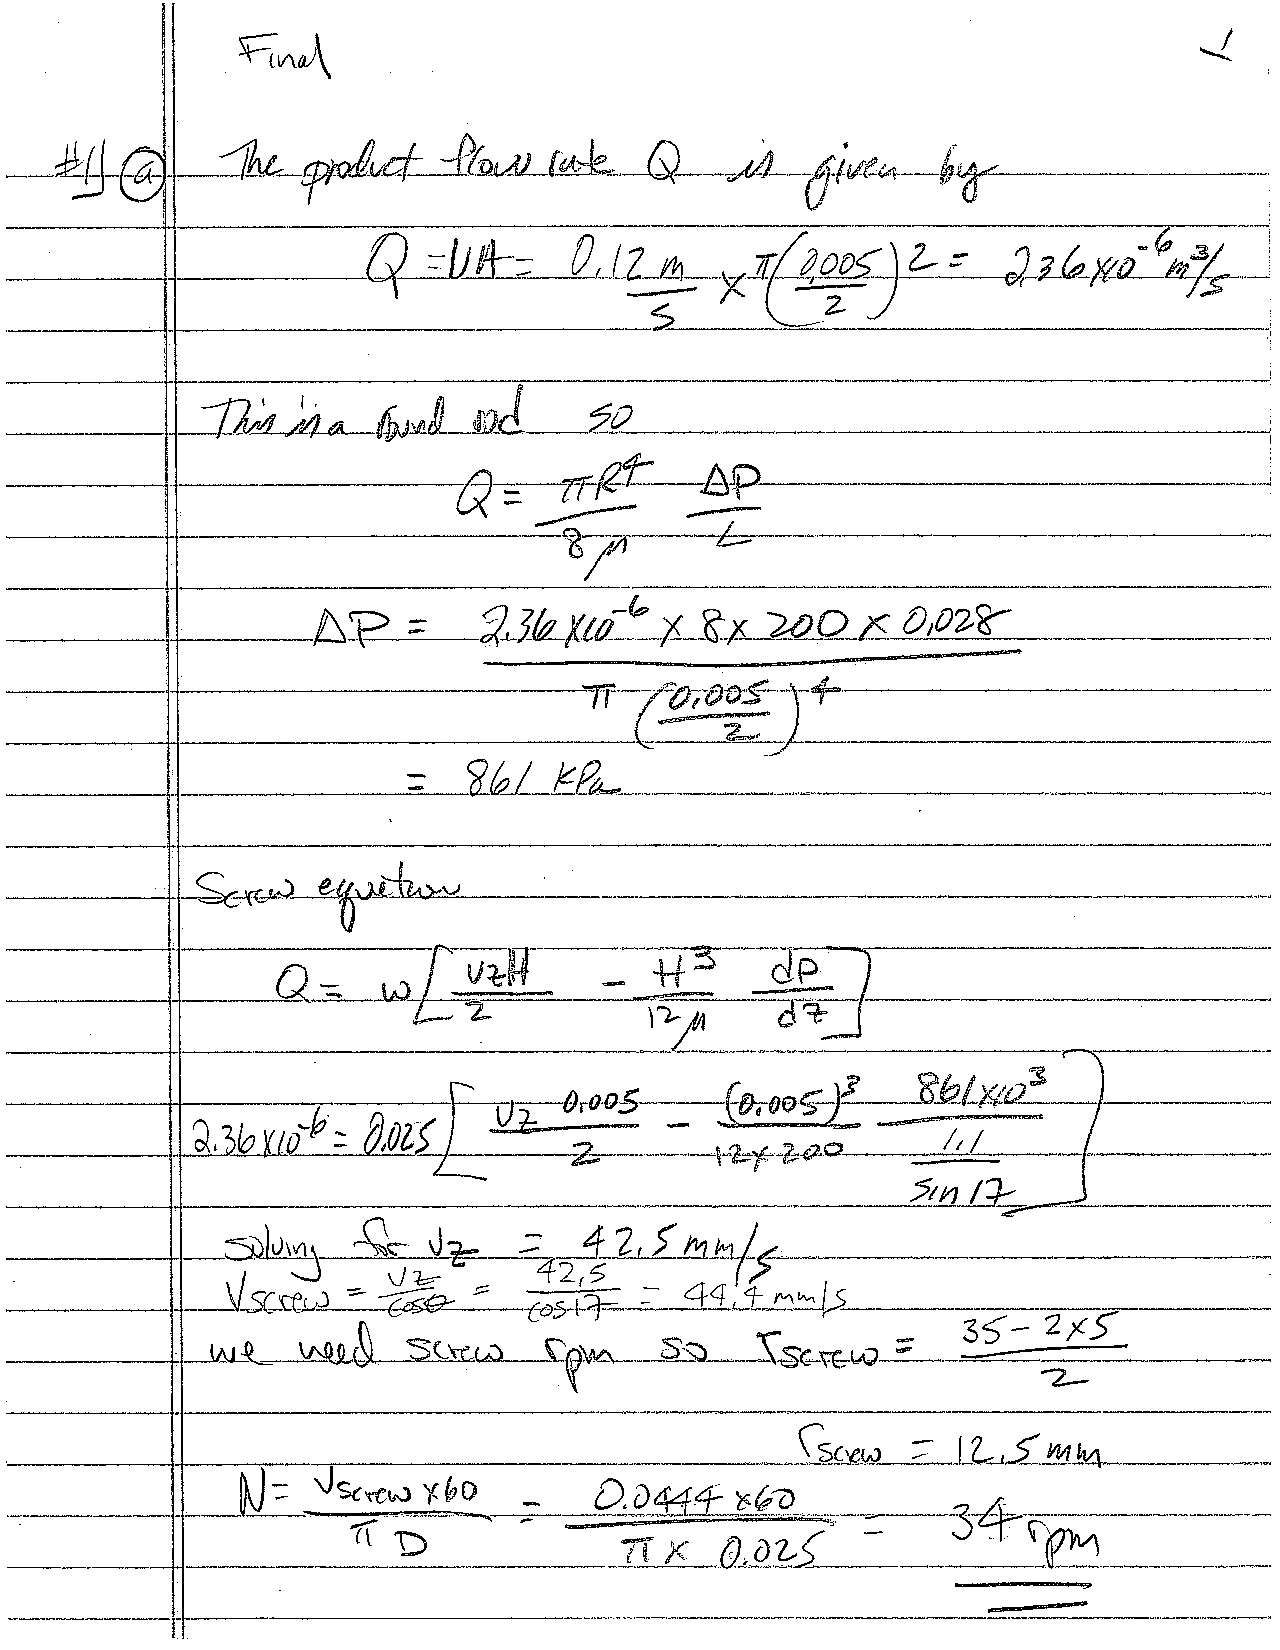 Final 1
#1) (a) The product flow rate Q is given by
Q = VA = 0.12 m/s × π(0.005/2)2 = 2.36×10^-6 m^3/s
This is a round rod so
Q = πR^4/8μ ΔP/L
ΔP = 2.36×10^-6 × 8 × 200 × 0.028 / π(0.005/2)^4
= 861 KPa
Screw equation
Q = w[vzH/2 - H^3/12μ dP/dz]
2.36×10^-6 = 0.025[vz 0.005/2 - (0.005)^3/12×200 861×10^3/(1.1/sin 17)]
solving for vz = 42.5 mm/s
Vscrew = vz/cosθ = 42.5/cos17 = 44.4 mm/s
we need screw rpm so rscrew = 35-2×5/2
rscrew = 12.5 mm
N = Vscrew×60/πD = 0.0444×60/π× 0.025 = 34 rpm